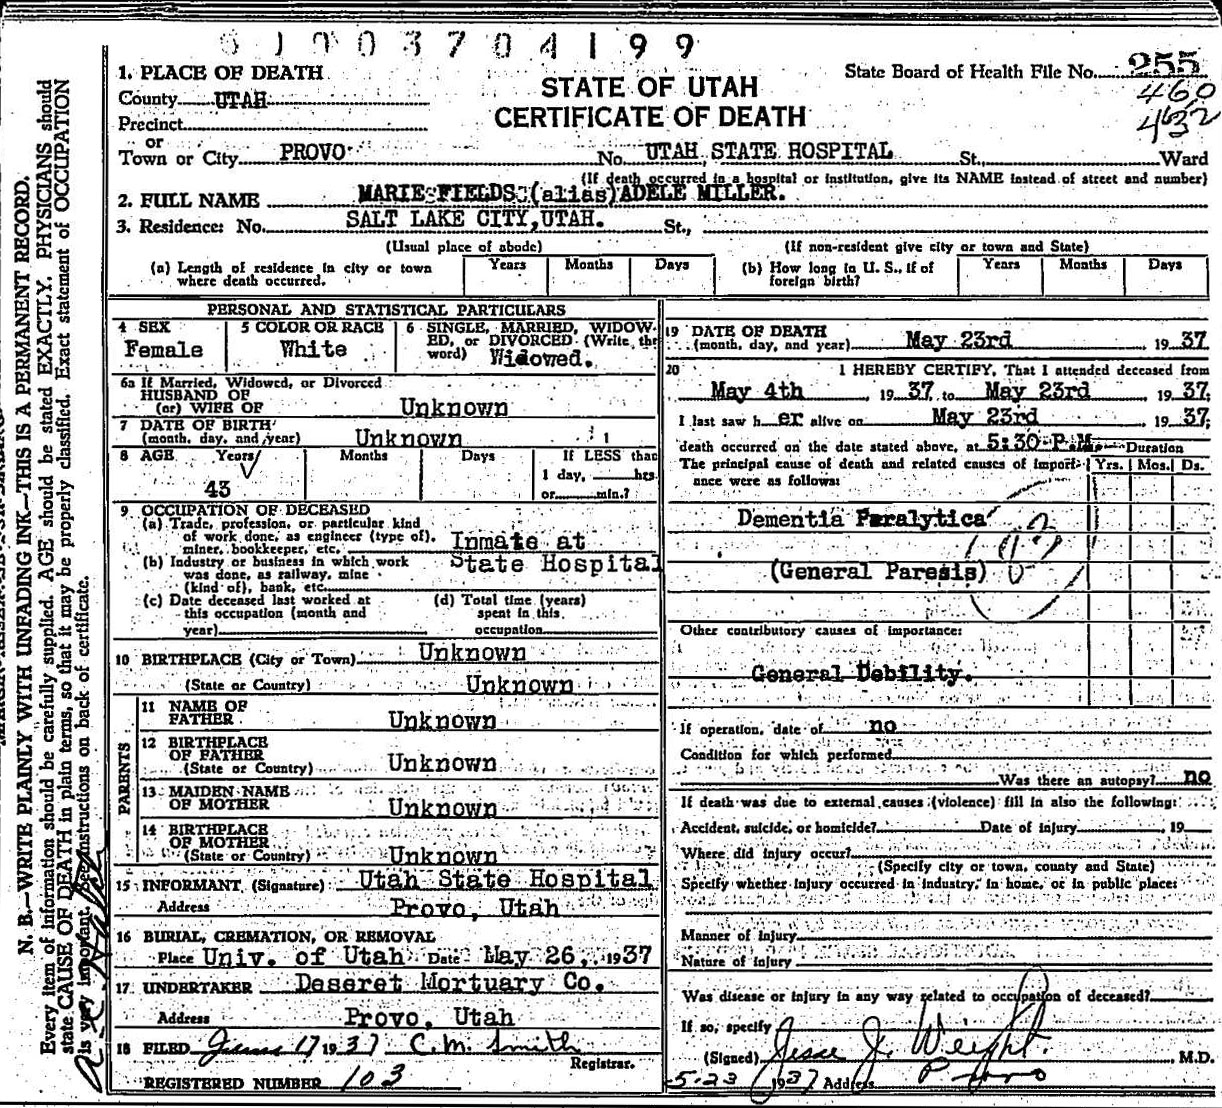 1. PLACE OF DEATH
STATE OF UTAH
CERTIFICATE OF DEATH
State Board of Health File No. 255
460
432
County UTAH
Precinct
or
Town or City PROVO No. UTAH STATE HOSPITAL St., Ward
(If death occurred in a hospital or institution, give its NAME instead of street and number)
2. FULL NAME MARIE FIELDS (alias) ADELE MILLER.
3. Residence: No. SALT LAKE CITY, UTAH. St.,
(Usual place of abode) (If non-resident give city or town and State)
(a) Length of residence in city or town where death occurred. Years Months Days
(b) How long in U. S., if of foreign birth? Years Months Days
PERSONAL AND STATISTICAL PARTICULARS
4 SEX
Female
5 COLOR OR RACE
White
6 SINGLE, MARRIED, WIDOWED, or DIVORCED (Write the word) Widowed.
6a If Married, Widowed, or Divorced
HUSBAND OF
(or) WIFE OF Unknown
7 DATE OF BIRTH
(month, day, and year) Unknown
8 AGE Years Months Days If LESS than
43 1 day, hrs.
or min.?
9 OCCUPATION OF DECEASED
(a) Trade, profession, or particular kind
of work done, as engineer (type of),
miner, bookkeeper, etc. Inmate at
(b) Industry or business in which work State Hospital
was done, as railway, mine
(kind of), bank, etc.
(c) Date deceased last worked at
this occupation (month and
year)
(d) Total time (years)
spent in this
occupation
10 BIRTHPLACE (City or Town) Unknown
(State or Country) Unknown
PARENTS
11 NAME OF
FATHER Unknown
12 BIRTHPLACE
OF FATHER Unknown
(State or Country)
13 MAIDEN NAME
OF MOTHER Unknown
14 BIRTHPLACE
OF MOTHER
(State or Country) Unknown
15 INFORMANT (Signature) Utah State Hospital
Address Provo, Utah
16 BURIAL, CREMATION, OR REMOVAL
Place Univ. of Utah Date May 26, 1937
17 UNDERTAKER Deseret Mortuary Co.
Address Provo, Utah
18 FILED June 17 1937 C. M. Smith
Registrar.
REGISTERED NUMBER 103
19 DATE OF DEATH
(month, day, and year) May 23rd, 1937
20 I HEREBY CERTIFY, That I attended deceased from
May 4th, 1937 to May 23rd, 1937;
I last saw her alive on May 23rd, 1937;
death occurred on the date stated above, at 5:30 P.M. Duration
The principal cause of death and related causes of importance were as follows: Yrs. Mos. Ds.
Dementia Paralytica
(General Paresis)
Other contributory causes of importance:
General Debility.
If operation, date of no
Condition for which performed
Was there an autopsy? no
If death was due to external causes (violence) fill in also the following:
Accident, suicide, or homicide? Date of injury , 19
Where did injury occur?
(Specify city or town, county and State)
Specify whether injury occurred in industry, in home, or in public place:
Manner of Injury
Nature of Injury
Was disease or injury in any way related to occupation of deceased?
If so, specify
(Signed) Jesse J. Weight. M.D.
5-23 1937 Address Provo
N. B.—WRITE PLAINLY WITH UNFADING INK—THIS IS A PERMANENT RECORD.
Every item of information should be carefully supplied. AGE should be stated EXACTLY. PHYSICIANS should
state CAUSE OF DEATH in plain terms, so that it may be properly classified. Exact statement of OCCUPATION
is very important. See instructions on back of certificate.